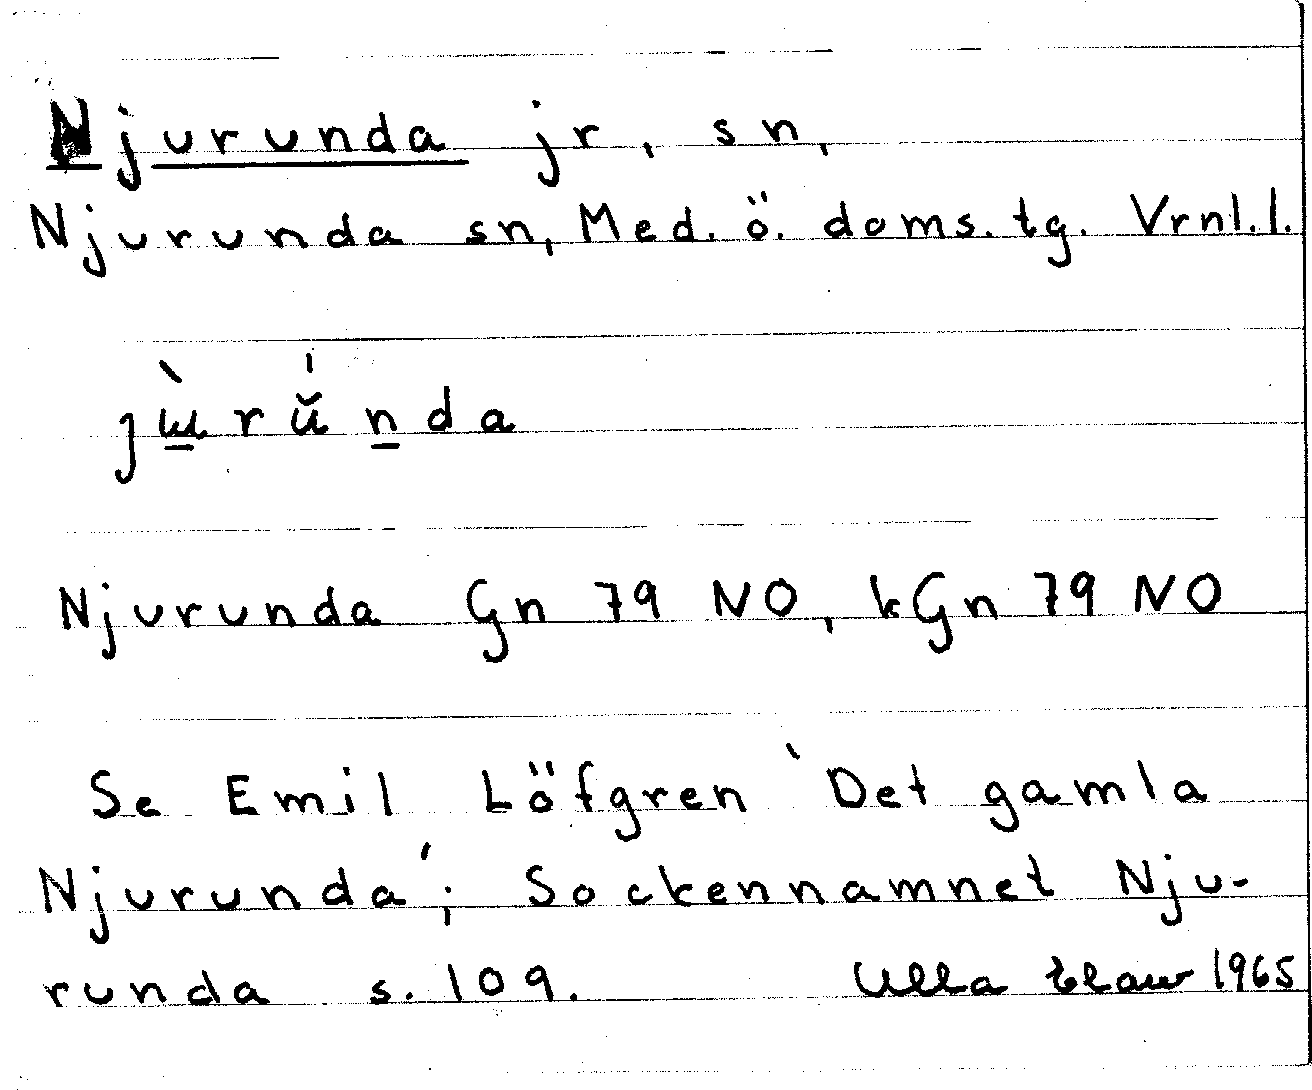 Njurunda jr, sn,
Njurunda sn, Med. ö. doms. tg. Vrnl. l.
Njurunda Gn 79 NO, kGn 79 NO
Se Emil Löfgren `Det gamla
Njurunda´; Sockennamnet Nju-
runda s. 109. Ulla 1965